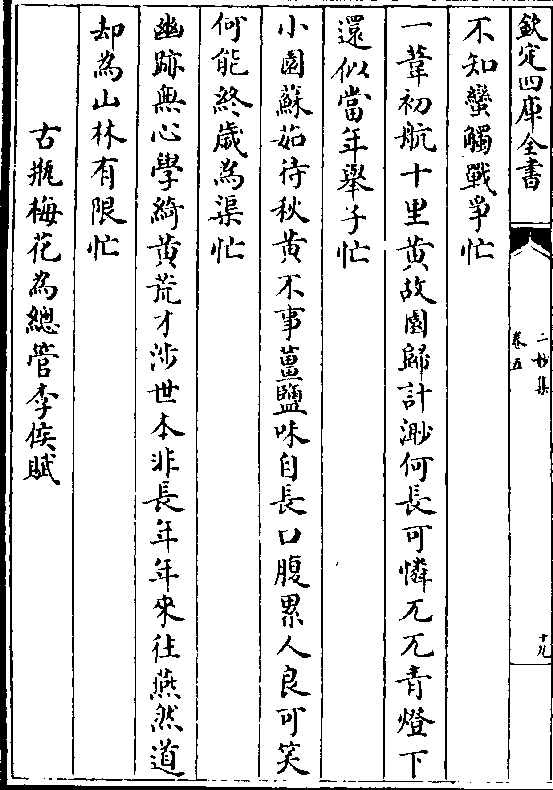 欽定四庫全書
二妙集
卷五
十九
不知蠻觸戰爭忙
一葦初航十里黄故園歸計渺何長可憐兀兀青燈下
還似當年舉子忙
小園蘇茹待秋黄不事薑鹽味自長口腹累人良可笑
何能終歲為渠忙
幽跡無心學綺黄荒才涉世本非長年年來往燕然道
却為山林有限忙
古瓶梅花為總管李侯賦